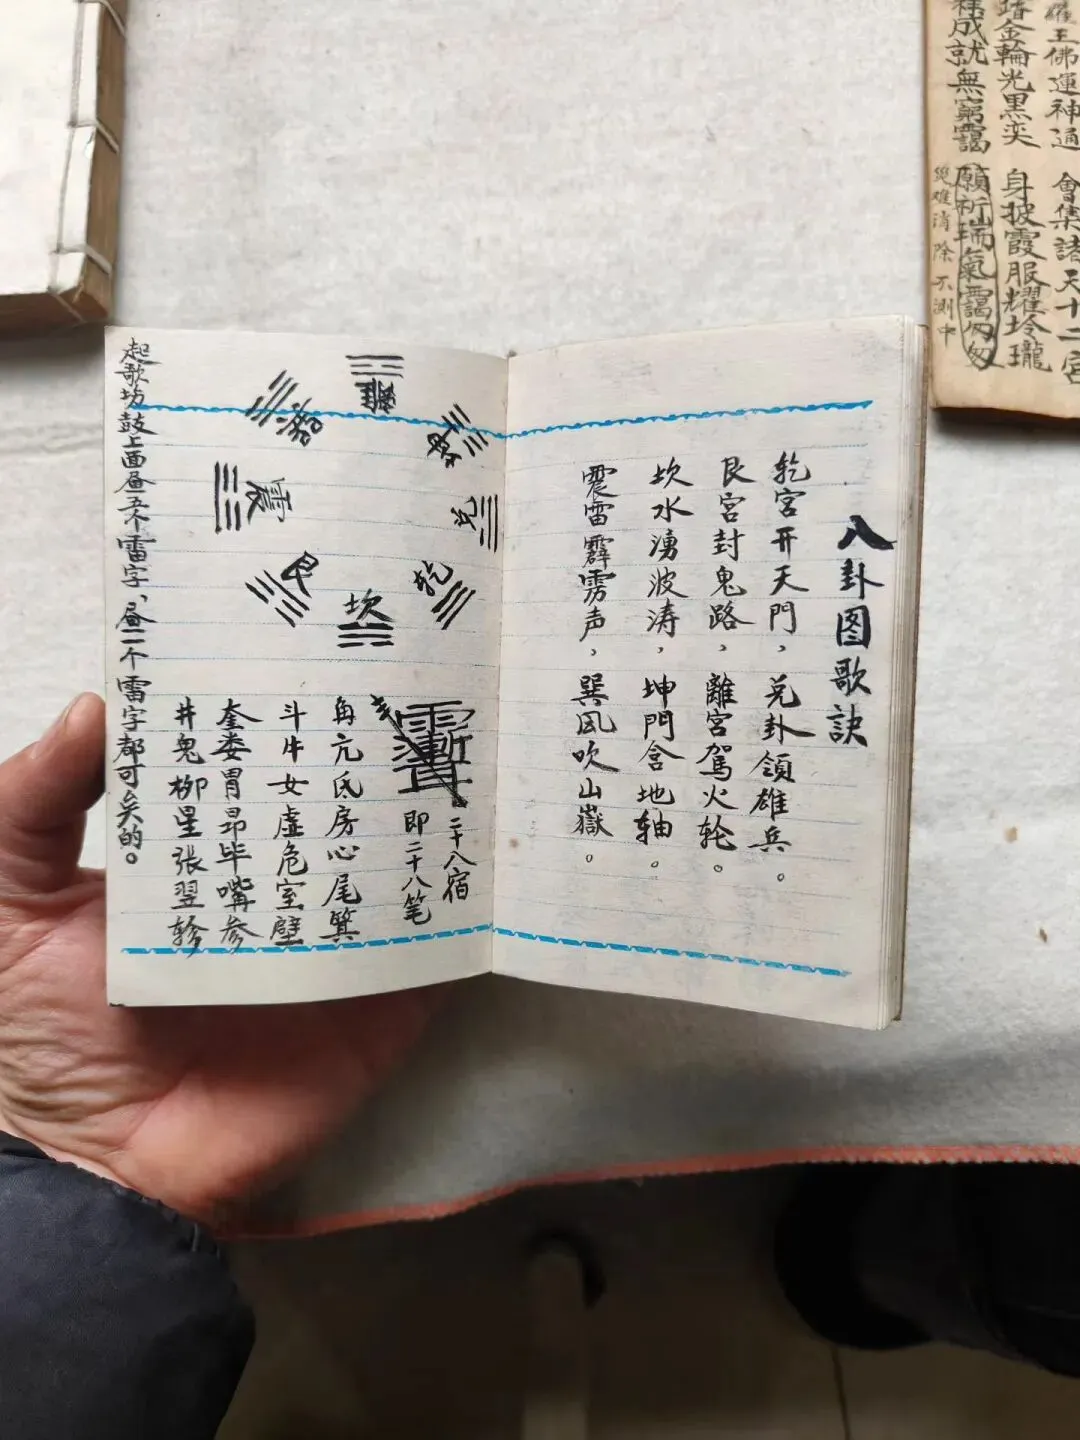 八卦图歌訣
乾宮开天門，兑卦領雄兵。
艮宫封鬼路，離宮駕火轮。
坎水湧波涛，坤門含地轴。
震雷霹雳声，巽風吹山嶽。
離
坤
兑
乾
坎
艮
震
巽
二十八宿
即二十八笔
角亢氐房心尾箕
斗牛女虚危室壁
奎娄胃昴毕嘴参
井鬼柳星张翌轸
起歌坊鼓上面画五个雷字、画一个雷字都可矣的。
羅王佛運神通 會集諸天十二宮
踏金輪光黑奕 身披霞服耀玲瓏
成就無窮靄 願祈瑞氣靄匆匆
災难消除不測中